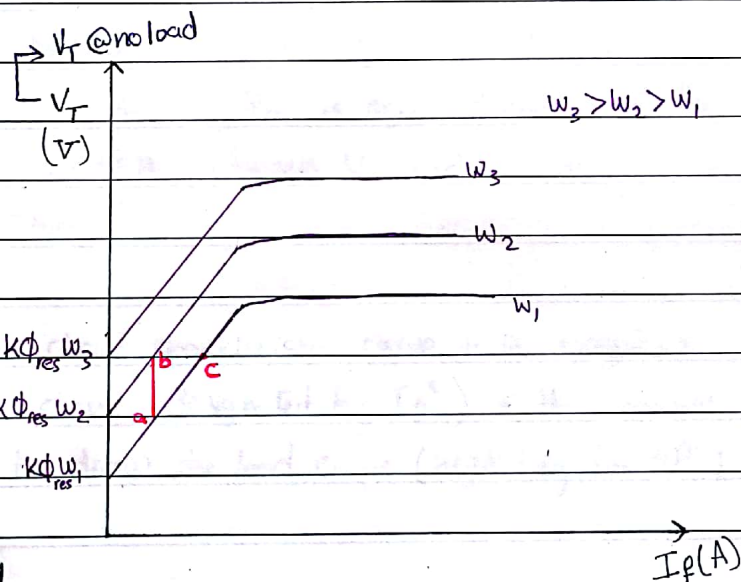 V_T @no load
V_T
(V)
W₃ > W₂ > W₁
W₃
W₂
W₁
Kϕres W₃
b
c
Kϕres W₂
a
Kϕres W₁
If(A)